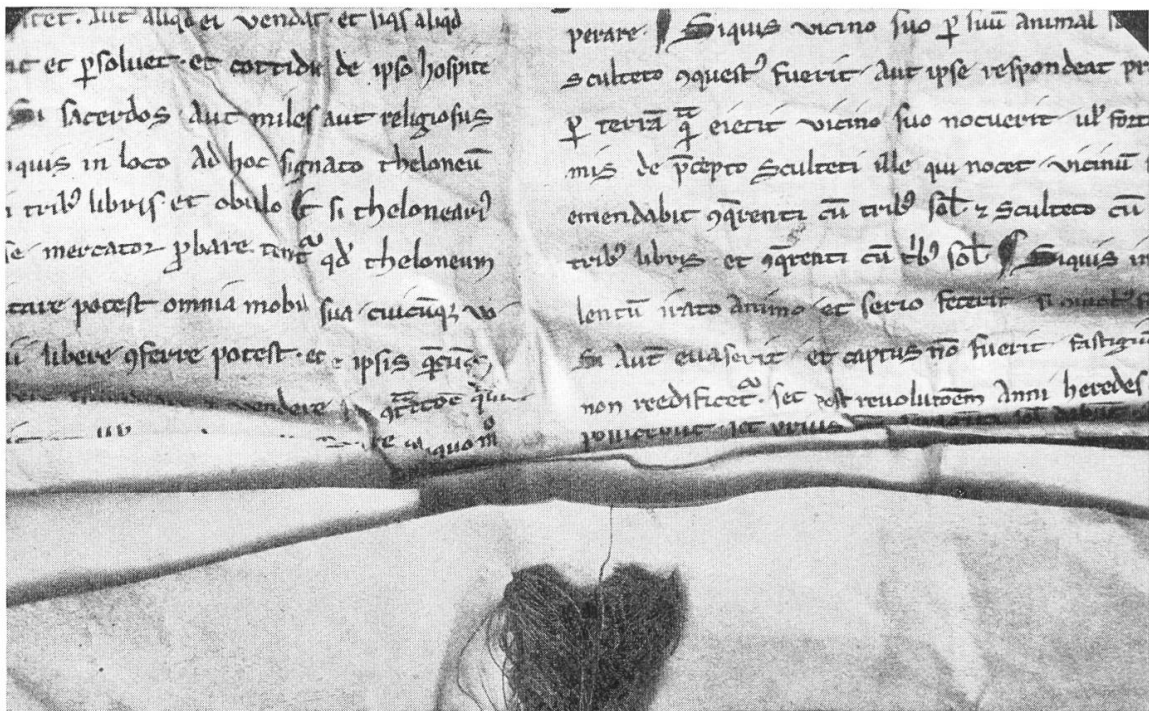 aut aliqd ei vendat · et siqs aliqd
et psoluet · et cottidie de ipso hospite
Si sacerdos aut miles aut religiosus
iquis in loco ad hoc signato theloneū
tribꝰ libris · et obulo Et si thelonearıꝰ
se mercator ꝓbare qd̕ theloneum
tare potest omnia mobil sua cuicūqꝫ
libere ꝯferre potest · et ipsis
vendere
perare · ¶ Siquis vicino suo ꝑ suū animal
Sculteto ꝯquestꝰ fuerit · Aut ipse respondeat
ꝑ terrā eiecit vicino suo nocuerit ul̕
mis de p̄cepto Sculteti ille qui nocet vicinū
emendabit ꝯq̄renti cū tribꝰ sol̕ ⁊ Sculteto cū
tribꝰ libris et ꝯq̄renti cū tͥbꝰ sol̕ ¶ Siquis
lentū irato animo et serio fecerit si
Si Aut̄ euaserit et captus nō fuerit fastigiū
non reedificetᷣ · set post reuolutōem Anni heredes